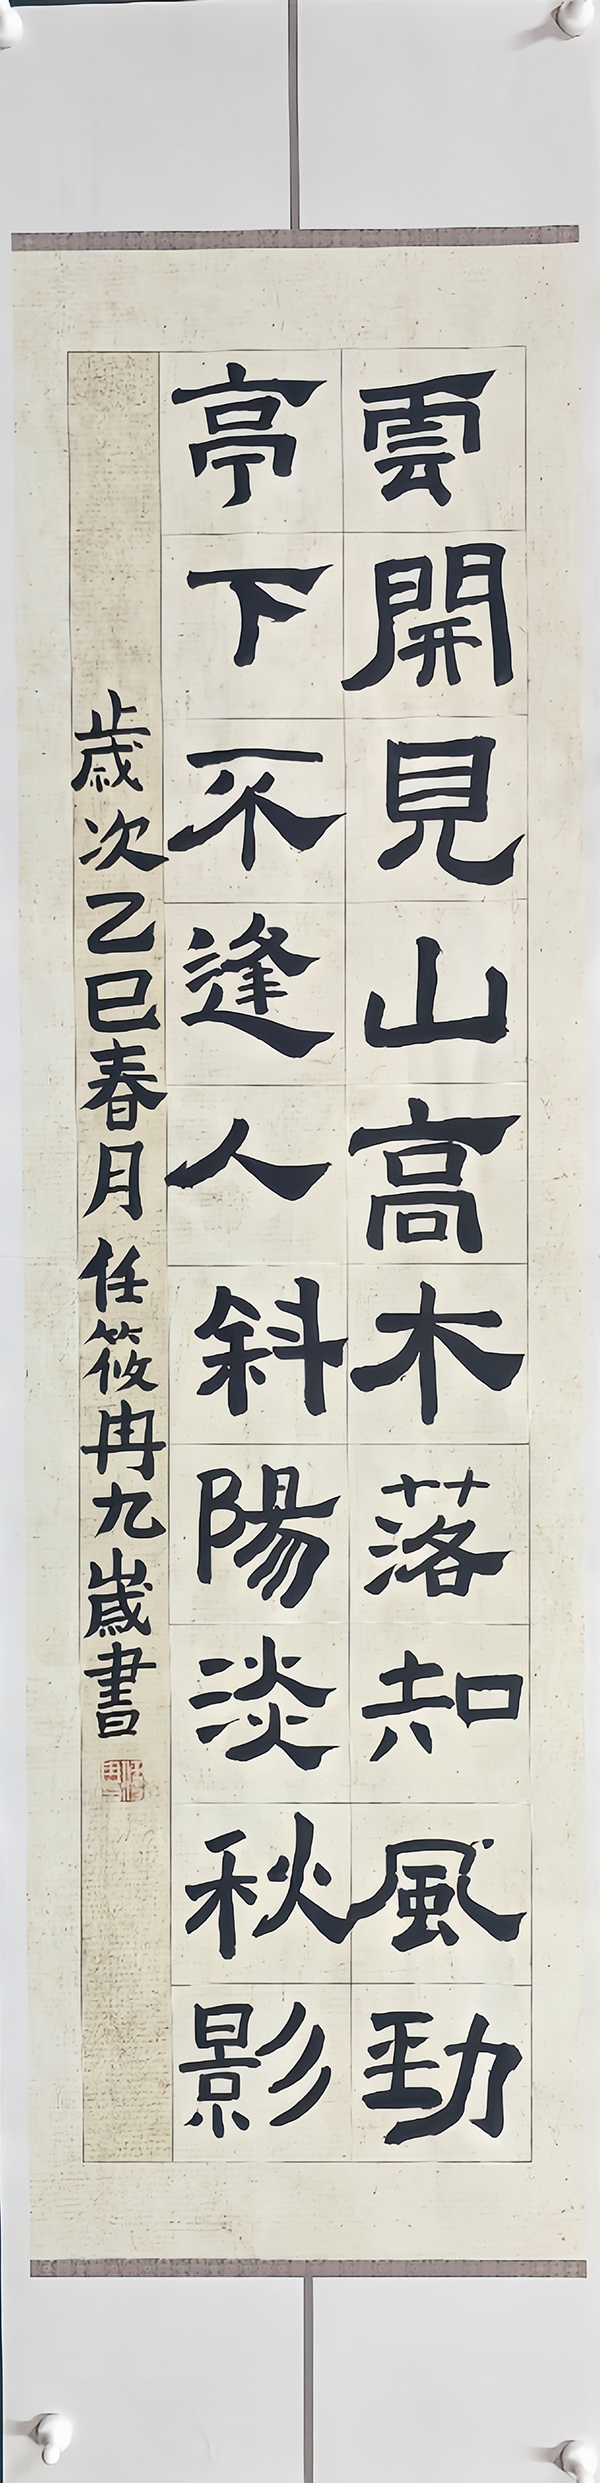 雲開見山高木落知風勁
亭下不逢人斜陽淡秋影
歲次乙巳春月任筱冉九歲書